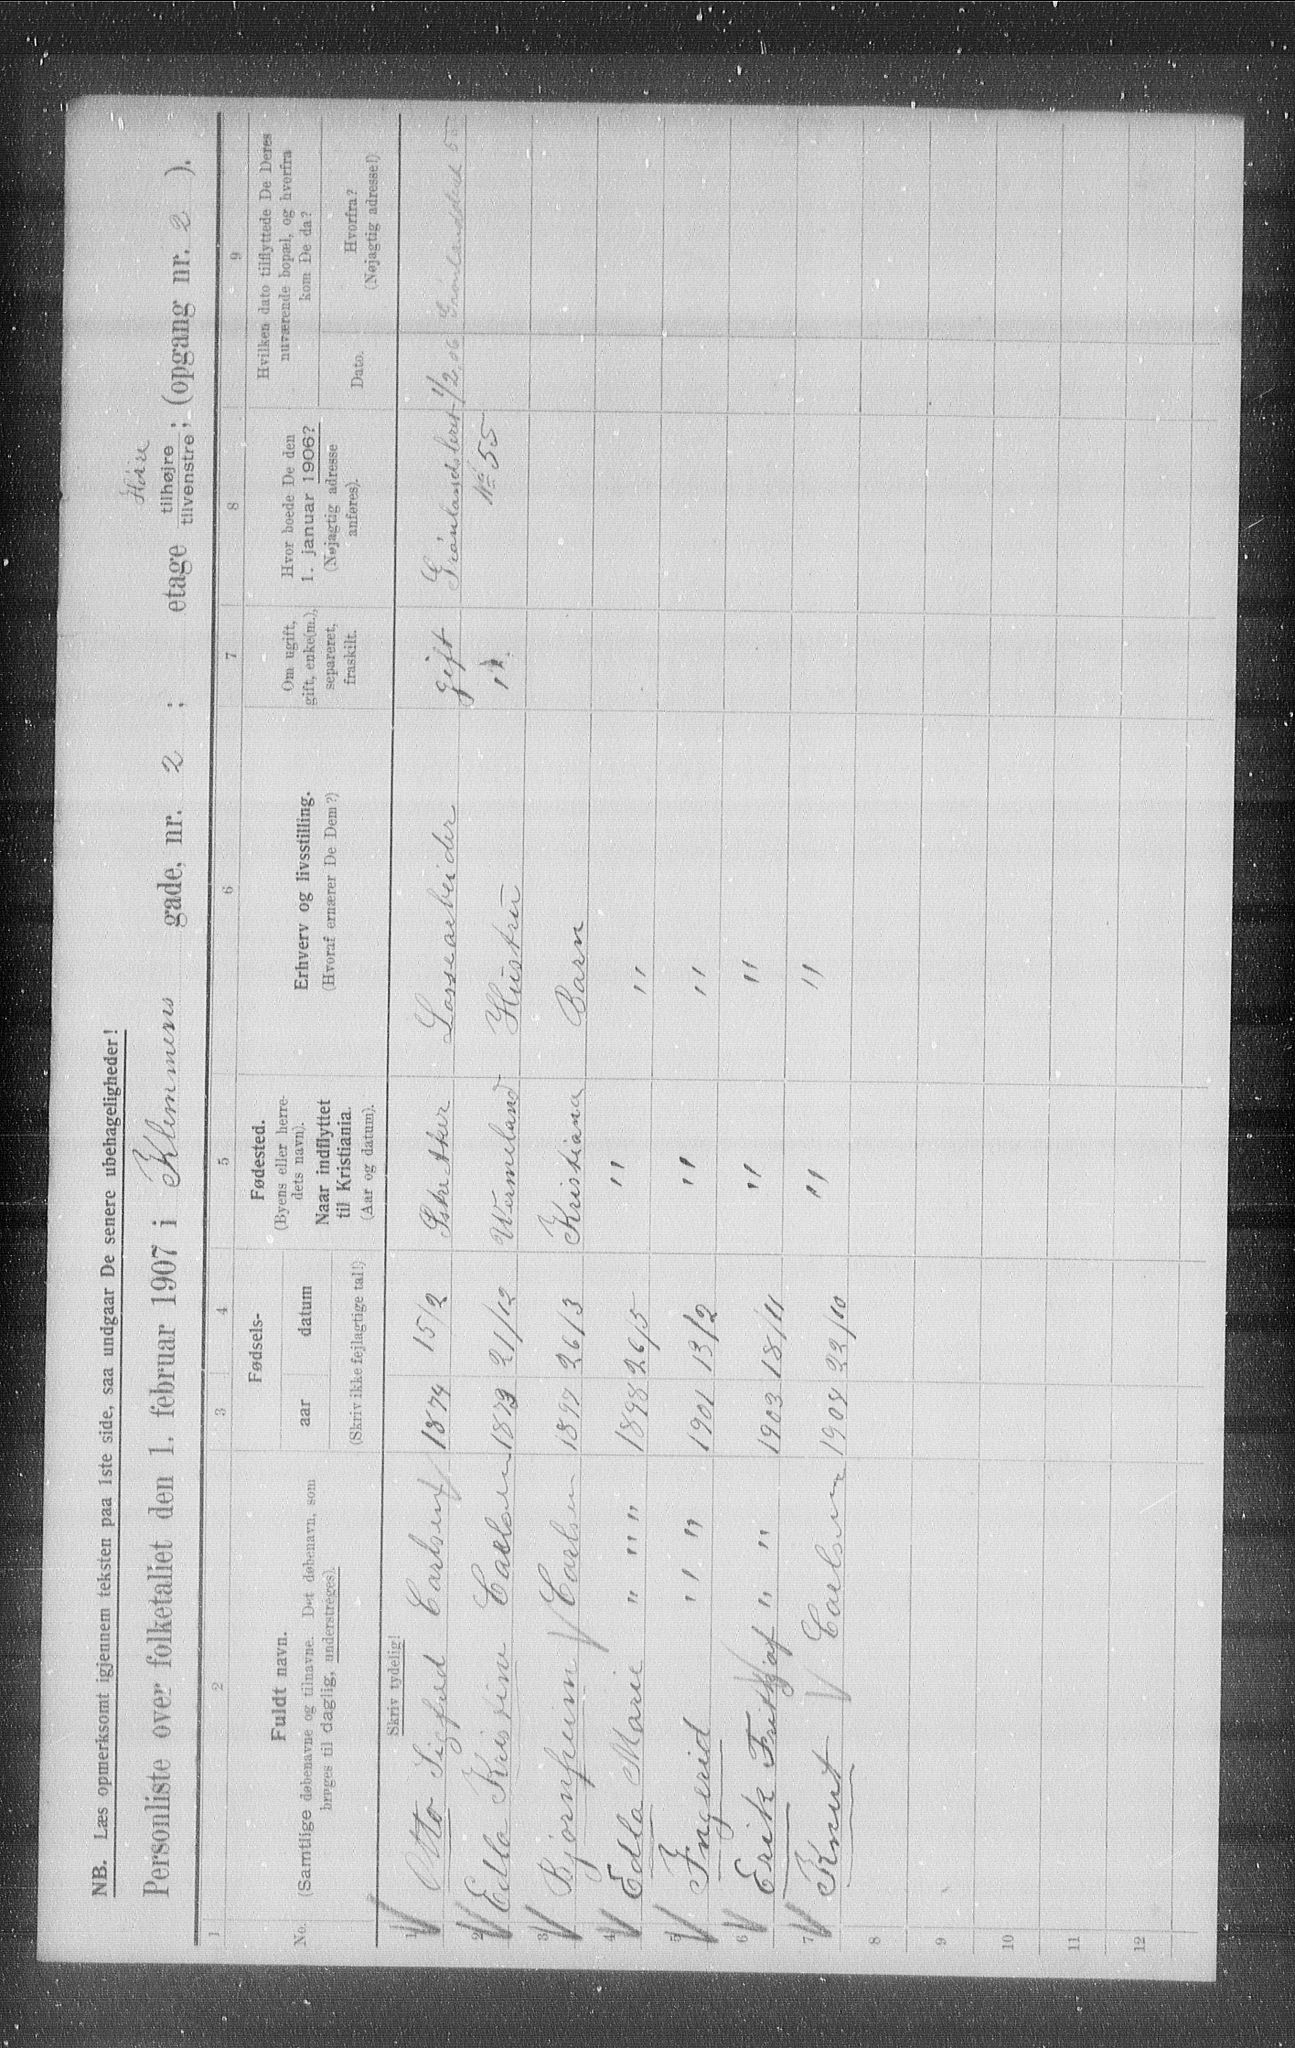 NB. Læs opmerksomt igjennem teksten paa 1ste side, saa undgaar De senere ubehageligheder!
Høire
Personliste over folketallet den 1. februar 1907 i Klemmens gade, nr. 2 ; etage tilhøjre tilvenstre ; (opgang nr. 2 ).
1 2 3 4 5 6 7 8 9
No. Fuldt navn. (Samtlige døbenavne og tilnavne. Det døbenavn, som bruges til daglig, understreges). Fødsels- aar datum (Skriv ikke fejlagtige tal!) Fødested. (Byens eller herredets navn). Naar indflyttet til Kristiania. (Aar og datum). Erhverv og livsstilling. (Hvoraf ernærer De Dem?) Om ugift, gift, enke(m.), separeret, fraskilt. Hvor boede De den 1. januar 1906? (Nøjagtig adresse anføres). Hvilken dato tilflyttede De Deres nuværende bopæl, og hvorfra kom De da? Dato. Hvorfra? (Nøjagtig adresse!)
Skriv tydelig!
1 Otto Sigfred Carlsen 1874 15/2 Lossearbeider gift Grønlandsleret 1/2 06 Grønlandsleret 55
2 Edla Kristine Carlsen 1873 21/12 Wermeland Hustru " No 55
3 Bjørnheim Carlsen 1897 26/3 Kristiana Barn
4 Edla Marie " " " 1898 26/5 " "
5 Ingerid " " 1901 13/2 " "
6 Erik Fritjof " " 1903 18/11 " "
7 Knut Carlsen 22/10 " "
8
9
10
11
12